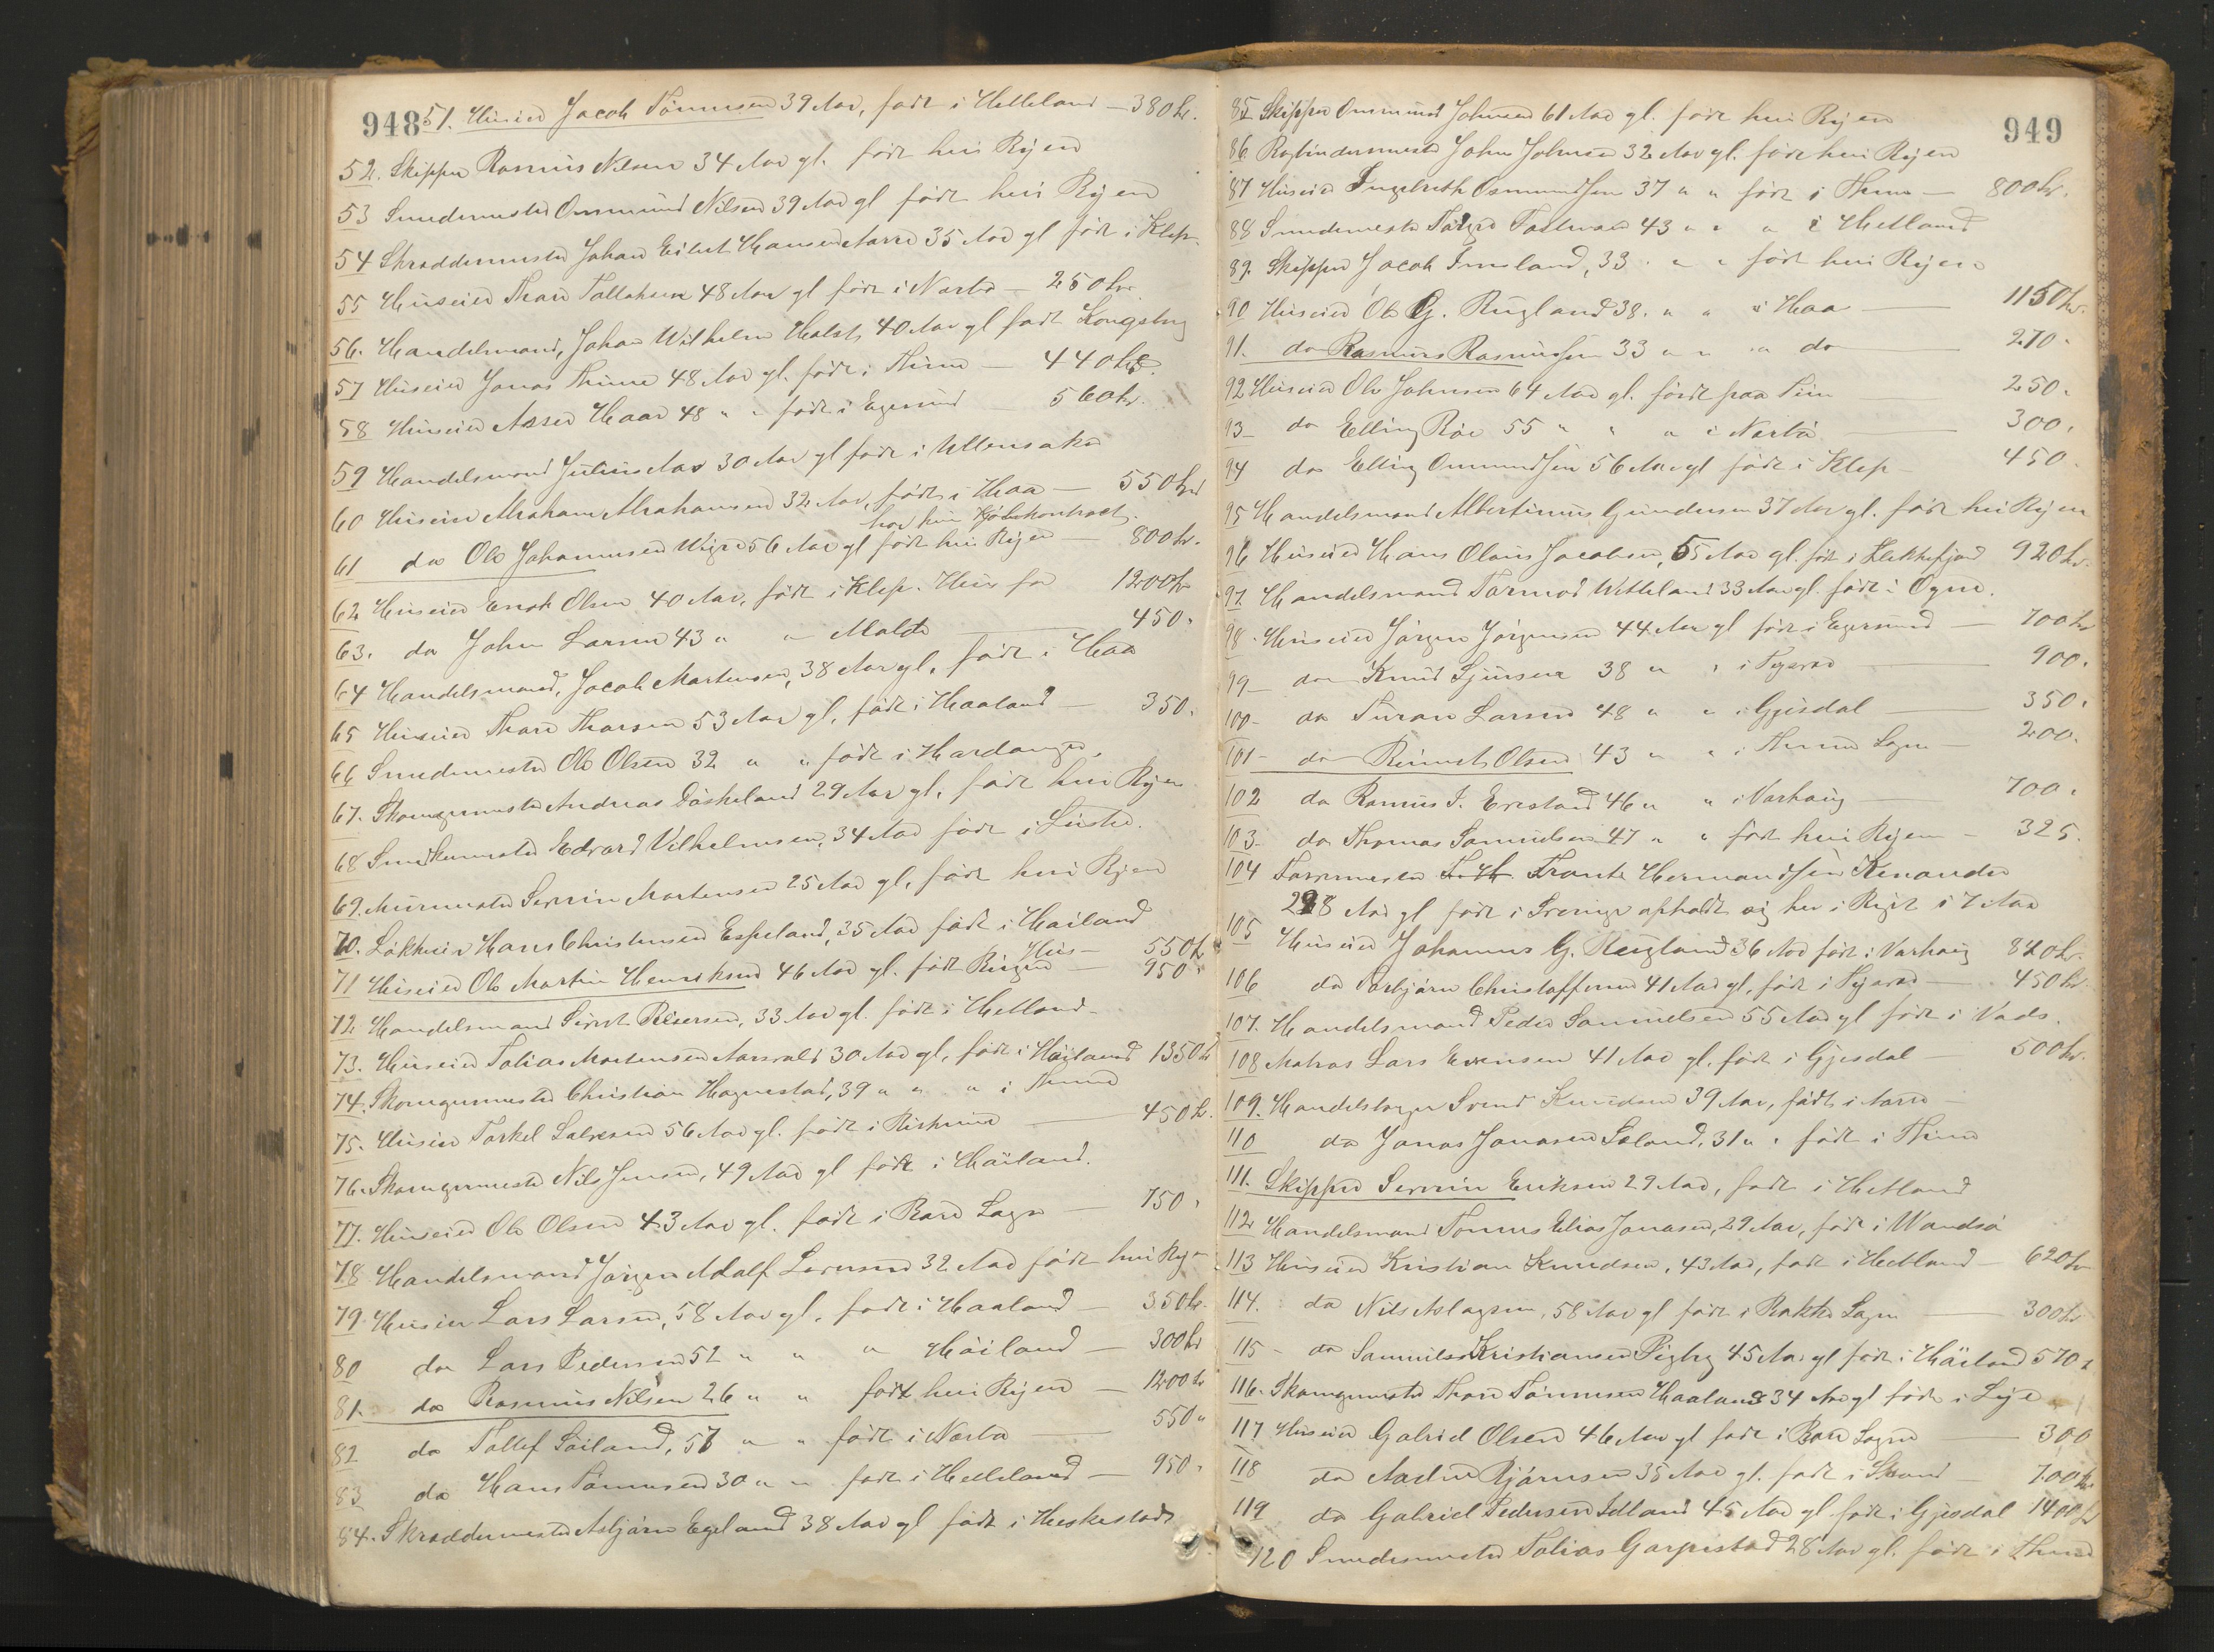 948
51. Huseier Jacob Tönnesen 39 Aar, født i Helleland — 380 kr.
52. Skipper Rasmus Nilsen 34 Aar gl. født hei Byen
53 Smedemester Ommund Nilsen 39 Aar gl født hei Byen
54 Skreddermester Johan Eilert Hansen Aarre 35 Aar gl født i Klep.
55 Huseier Thore 48 Aar gl født i Nærbø — 250 kr.
56. Handelsmand, Johan Wilhelm Holst, 40 Aar gl født Kongsberg
57 Huseier Jonas Thime 48 Aar gl. født i Thime — 440 kr.
58 Huseier Asser Haar 48 " " født i Egersund — 560 kr.
59 Handelsmand Julius Aas 30 Aar gl født i Ullensaker
60 Huseier Abraham Abrahamsen 32 Aar, født i Haa — 550 kr
har kun Kjøbekontract.
61 do Ole Johannesen 56 Aar gl født hei Byen — 800 kr.
62 Huseier Enok Olsen 40 Aar, født i Klep. Hus for 1200 kr
63. do John Larsen 43 " " Malde — 450 "
64 Handelsmand, Jacob Martensen, 38 Aar gl, født i Haa
65 Huseier Thore Thorsen 53 Aar gl, født i Haaland — 350 "
66 Smedemester Ole Olsen 32 " " født i Hardanger.
67. Skomagermester Andreas 29 Aar gl, født hei Byen
68 Edvard Vilhelmsen, 34 Aar født i Lister.
69. Murmester Serrin Mortensen 25 Aar gl, født hei Byen
70. Hans Christensen Espeland, 35 Aar født i Høiland
Hus — 550 kr
71 Huseier Ole Martin Henriksen 46 Aar gl. født Bergen — 950 "
72 Handelsmand Sivert Reiersen, 33 Aar gl. født i Hetland
73. Huseier Tobias Mortensen Aarsvold 30 Aar gl, født i Høiland 1350 kr
74. Skomagermester Christian Hognestad, 39 " " " i Thime
75. Huseier Torkel Salvesen 56 Aar gl. født i — 450 kr.
76. Skomagermester Nils Jensen, 49 Aar gl født i Høiland.
77. Huseier Ole Olsen 43 Aar gl. født i Bore Sogn — 750 "
78 Handelsmand Jørgen Adolf 32 Aar født hei Byen
79 Huseier Lars Larsen, 58 Aar gl, født i Haaland — 350 kr.
80 do Lars Pedersen 52 " " " Høiland — 300 kr
81. do Rasmus Nilsen 26 " " født hei Byen — 1200 kr
82 do Tollef Soiland, 57 " " født i Nærbø — 550 "
83 do Hans Tönnesen 30 " " født i Helleland — 950 "
84. Skreddermester Asbjørn Egeland 38 Aar gl født i Heskestad
949
85 Skipper Ommund Johnsen 61 Aar gl. født hei Byen
86 Bogbindermester John Johnsen 32 Aar gl. født hei Byen
87 Huseier Ingebreth Osmundsen 37 " " født i Thime — 800 kr.
88 Smedemester 43 " " " i Hetland
89. Skipper Jacob Imsland, 33 " " født hei Byen
90 Huseier Ole G. Rugland 38. " " i Haa — 1150 kr.
91. do Rasmus Rasmussen 33 " " " do — 270 "
92 Huseier Ole Johnsen 64 Aar gl. født paa — 250 "
93 — do Elling 55 " " " i Nærbø — 300 "
94 do Elling Ommundsen 56 Aar gl født i Klep — 450 "
95 Handelsmand Albertinius Gundersen 37 Aar gl. født hei Byen
96 Huseier Hans Olaus Jacobsen, 55 Aar gl. født i Flekkefjord 920 kr.
97. Handelsmand Tarmod 33 Aar gl. født i Ogne.
98. Huseier Jørgen Jørgensen 44 Aar gl født i Egersund — 700 kr
99 — do Knud Sjursen 38 " " i — 900 "
100 — do Turan Larsen 48 " " i Gjesdal — 350 "
101 — do Olsen 43 " " i Thime Sogn — 200 "
102 do Rasmus J. Erestad 46 " " i Varhaug — 700 "
103. do Thomas Samuelsen 47 " " født hei Byen — 325 "
104 Frantz Hermandsen
28 Aar gl født i Sverige opholdt sig her i Riget i 7 Aar
105 Huseier Johannes G. Rugland 36 Aar født i Varhaug 820 kr.
106 do Torbjørn Christoffersen 41 Aar gl, født i — 450 kr.
107. Handelsmand Peder Samuelsen 55 Aar gl født i Vads.
108 Matros Lars Evensen 41 Aar gl. født i Gjesdal 500 kr.
109. Svend Knudsen 39 Aar, født i Aarre —
110 do Jonas Jonasen Sæland, 31 " " født i Thime
111. Skipper Serrin Eriksen 29 Aar, født i Hetland
112 Handelsmand Tönnes Elias Jonasen, 29 Aar, født i
113 Huseier Kristian Knudsen, 43 Aar, født i Hetland — 620 kr
114. do Nils Aslagsen, 58 Aar gl født i Sogn — 300 kr
115 — do Samuel Kristiansen 45 Aar gl født i Høiland 570 "
116. Skomagermester Thore Tönnesen Haaland 34 Aar gl født i Lye
117 Huseier Gabriel Olsen 46 Aar gl født i Bore Sogn — 300
118 do Bjørnsen 35 Aar gl. født i Strand — 700 kr
119 do Gabriel Pedersen 45 Aar gl født i Gjesdal 1400 kr
120 Smedemester Tobias Garpestad 28 Aar gl. født i Thime